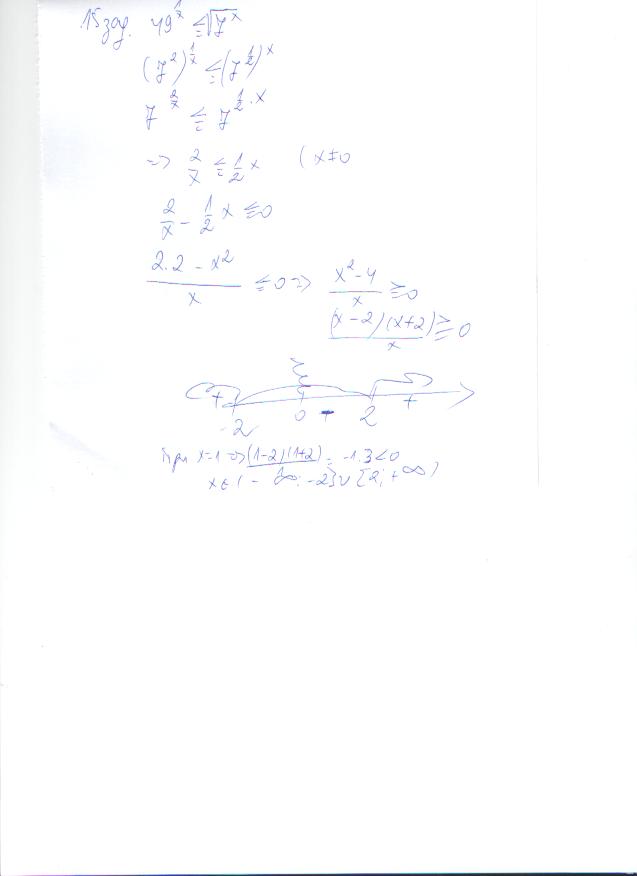 15 зад. 49^(1/x) ≤ √(7^x)
(7^2)^(1/x) ≤ (7^(1/2))^x
7^(2/x) ≤ 7^(1/2 · x)
=> 2/x ≤ 1/2 x (x≠0
2/x - 1/2 x ≤ 0
(2.2 - x^2)/x ≤ 0 => (x^2-4)/x ≥ 0
((x-2)(x+2))/x ≥ 0
+ - +
-2 0 2
При x=1 => (1-2)(1+2)/1 = -1.3<0
x ∈ (-∞; -2] ∪ [2; +∞)